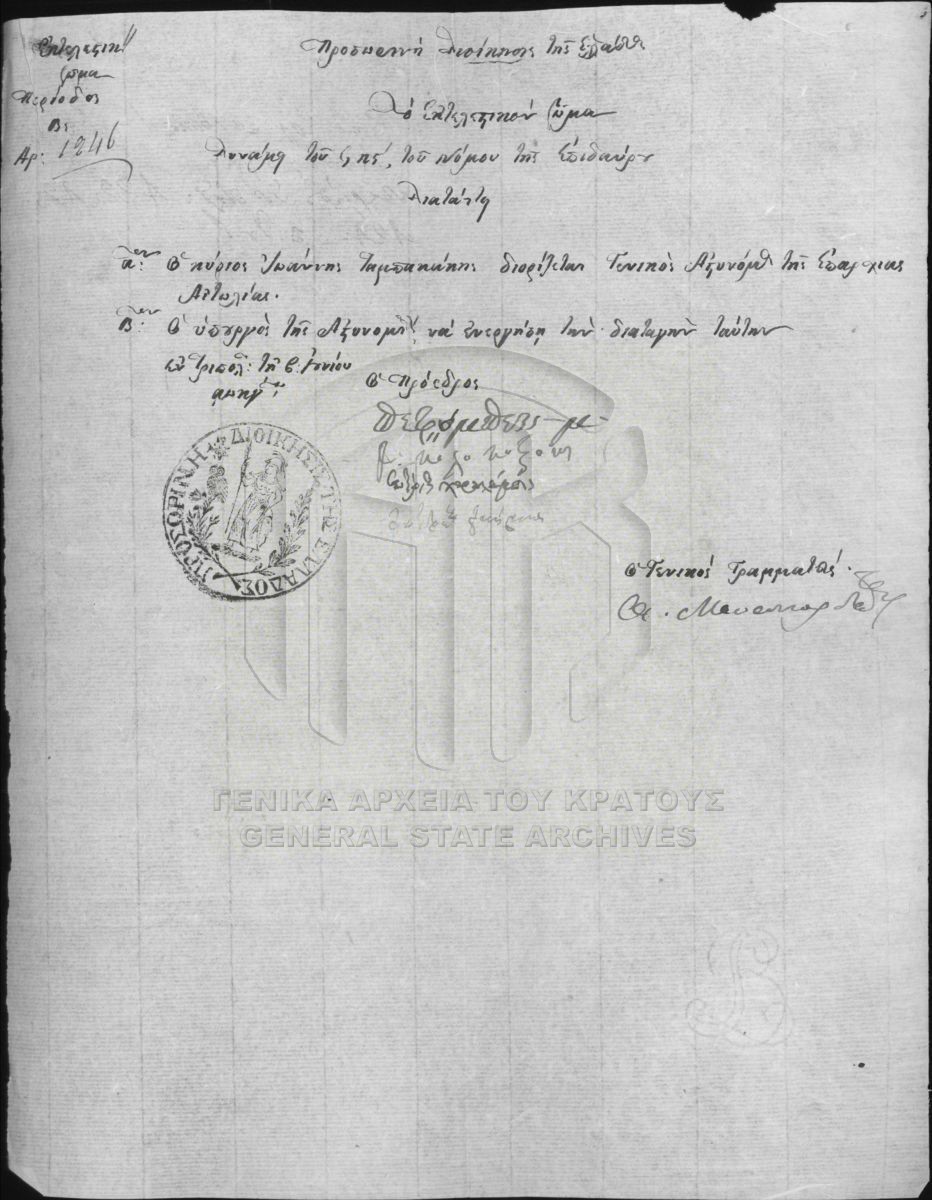 Ἐκτελεστικ//
Σῶμα
Περίοδος
Βα
Ἀρ: 1246
Προσωρινὴ Διοίκησις τῆς Ἑλλάδος
Τὸ Ἐκτελεστικὸν Σῶμα
Δυνάμει τοῦ ξ πέ, τοῦ Νόμου τῆς Ἐπιδαύρου
Διατάττει
αον: Ὁ κύριος Ἰωάννης Ταμπακάκης διορίζεται Γενικὸς Ἀστυνόμος τῆς Ἐπαρχίας
Αἰτωλίας.
Βον: Ὁ ὑπουργὸς τῆς Ἀστυνομίας νὰ ἐνεργήσῃ τὴν διαταγὴν ταύτην
Ἐν Τριπολ: τῇ Ἰουνίου
αωκγʹ
Ὁ Πρόεδρος
Πετρόμπεης
Ὁ Γενικὸς Γραμματεὺς.
Α. Μαυροκορδάτος
ΠΡΟΣΩΡΙΝΗ ΔΙΟΙΚΗΣΙΣ ΤΗΣ ΕΛΛΑΔΟΣ
ΓΕΝΙΚΑ ΑΡΧΕΙΑ ΤΟΥ ΚΡΑΤΟΥΣ
GENERAL STATE ARCHIVES